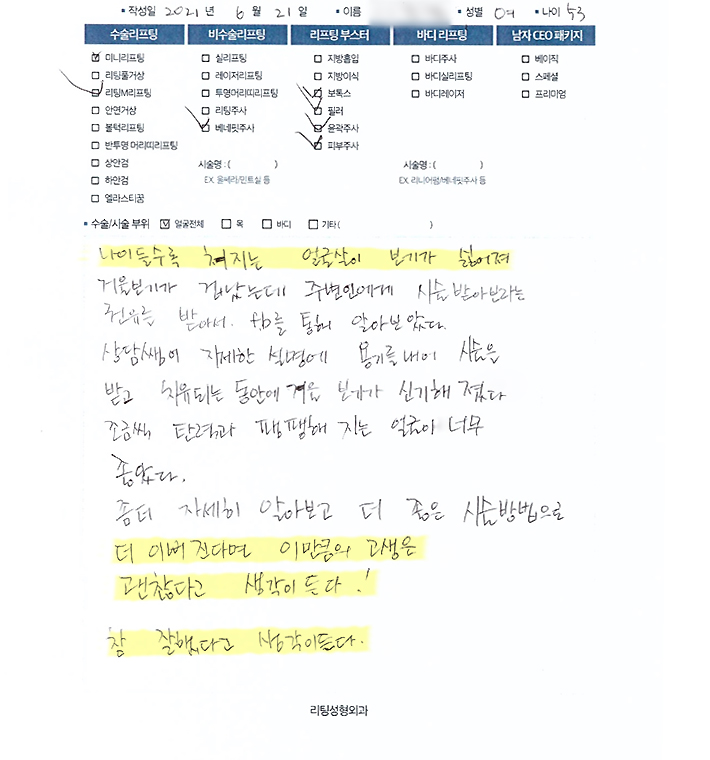 • 작성일 2021년 6월 21일 • 이름 • 성별 여 • 나이 53
수술리프팅 비수술리프팅 리프팅 부스터 바디 리프팅 남자 CEO 패키지
미니리프팅 실리프팅 지방흡입 바디주사 베이직
리팅풀거상 레이저리프팅 지방이식 바디실리프팅 스페셜
리팅M리프팅 투명머리띠리프팅 보톡스 바디레이저 프리미엄
안면거상 리팅주사 필러
볼턱리프팅 베네핏주사 윤곽주사
반투명 머리띠리프팅 피부주사
상안검 시술명 : ( ) 시술명 : ( )
하안검 EX. 울쎄라/민트실 등 EX. 리니어펌/베네핏주사 등
엘라스티꿈
• 수술/시술 부위 얼굴전체 목 바디 기타 ( )
나이들수록 쳐지는 얼굴살이 보기가 싫어져
거울보기가 겁났는데 주변인에게 시술 받아보라는
권유를 받아서. fb를 통해 알아보았다.
상담쌤의 자세한 설명에 용기를 내어 시술을
받고 치유되는 동안에 거울 보기가 신기해 졌다
조금씩 탄력과 팽팽해 지는 얼굴이 너무
좋았다.
좀더 자세히 알아보고 더 좋은 시술방법으로
더 이뻐 진다면 이만큼의 고생은
괜찮다고 생각이 든다.!
참 잘했다고 생각이든다.
리팅성형외과